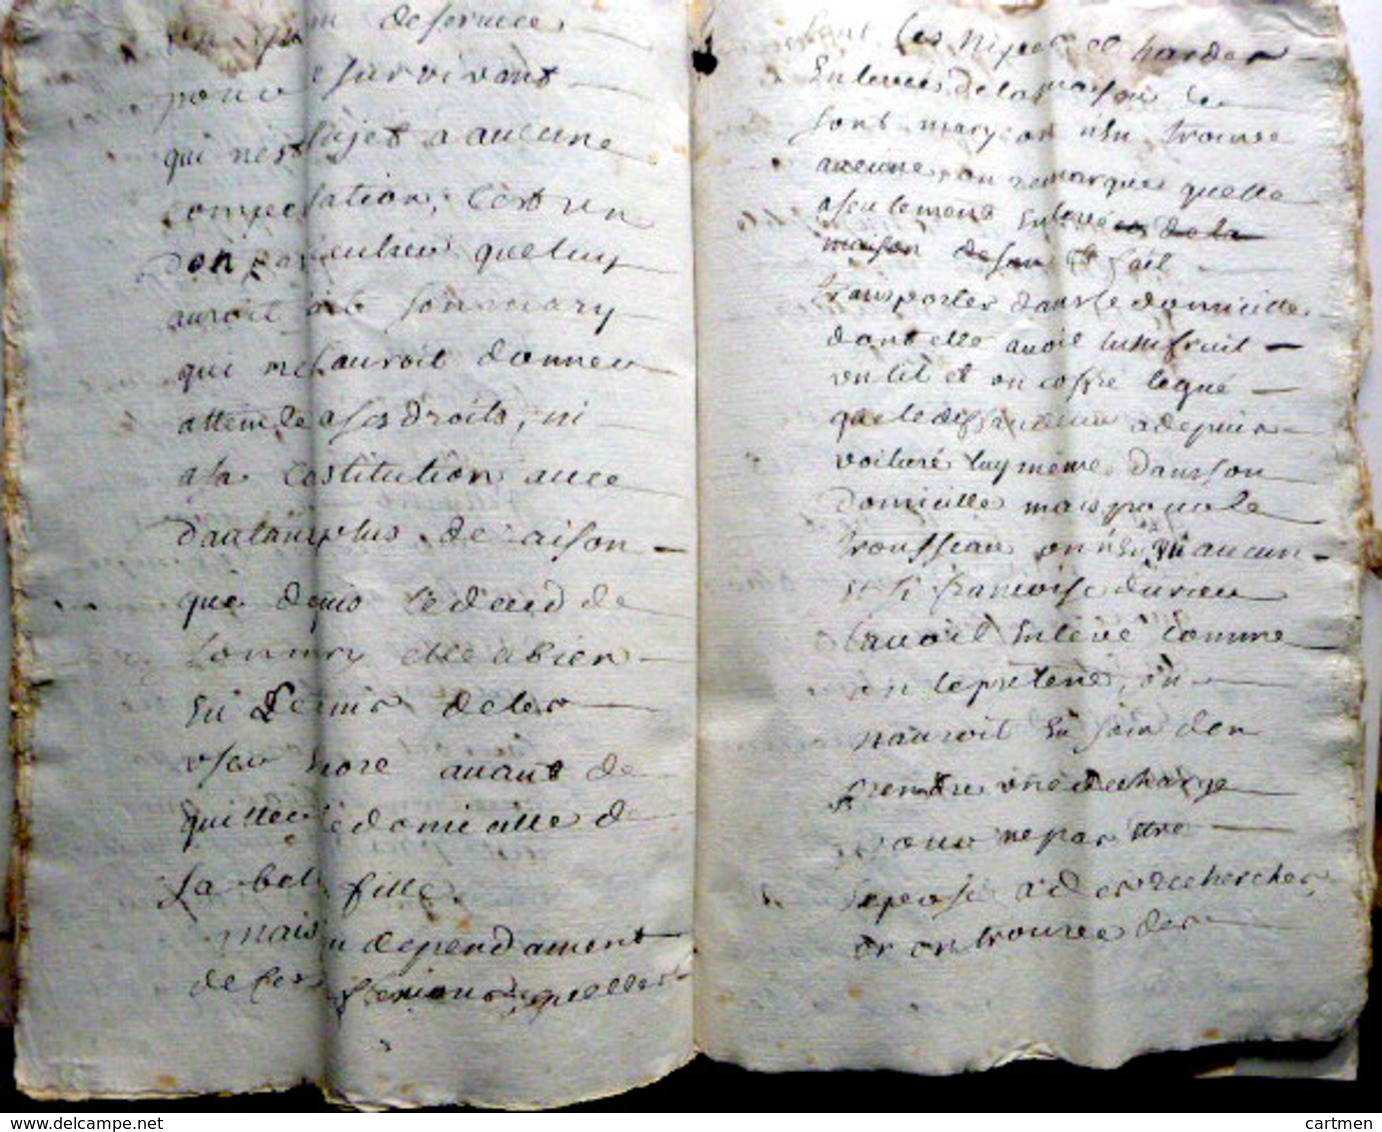 de survie
pour survivant
qui nest sujet a aucune
compensation, cest un
don particulier que luy
auroit fait son mary
qui ne sauroit donner
atteinte a ses droits, ni
a sa Constitution avec
dautant plus de raison
que depuis le deced de
son mary elle a bien
de les
avant de
quitter le domicille de
sa belle fille
mais independament
de ces
sont les nipes et hardes
Enlevees de la maison de
sont mary on n'En trouve
aucune, on remarque quelle
a seulement Enlevé es de la
maison de son et fait
transporter dans le domicille
dont elle avoit lusufruit
un lit et un coffre legué
que le deffandeur a depuis
voituré luy meme dans son
domicille mais pour le
trousseau on n'En aucun
et si francoise durieu
lavoit Enlevé comme
on le pretend, on
nauroit Eu soin den
prendre une decharge
pour ne pas etre
exposé a des recherches
or on trouve des
www.delcampe.net
cartmen